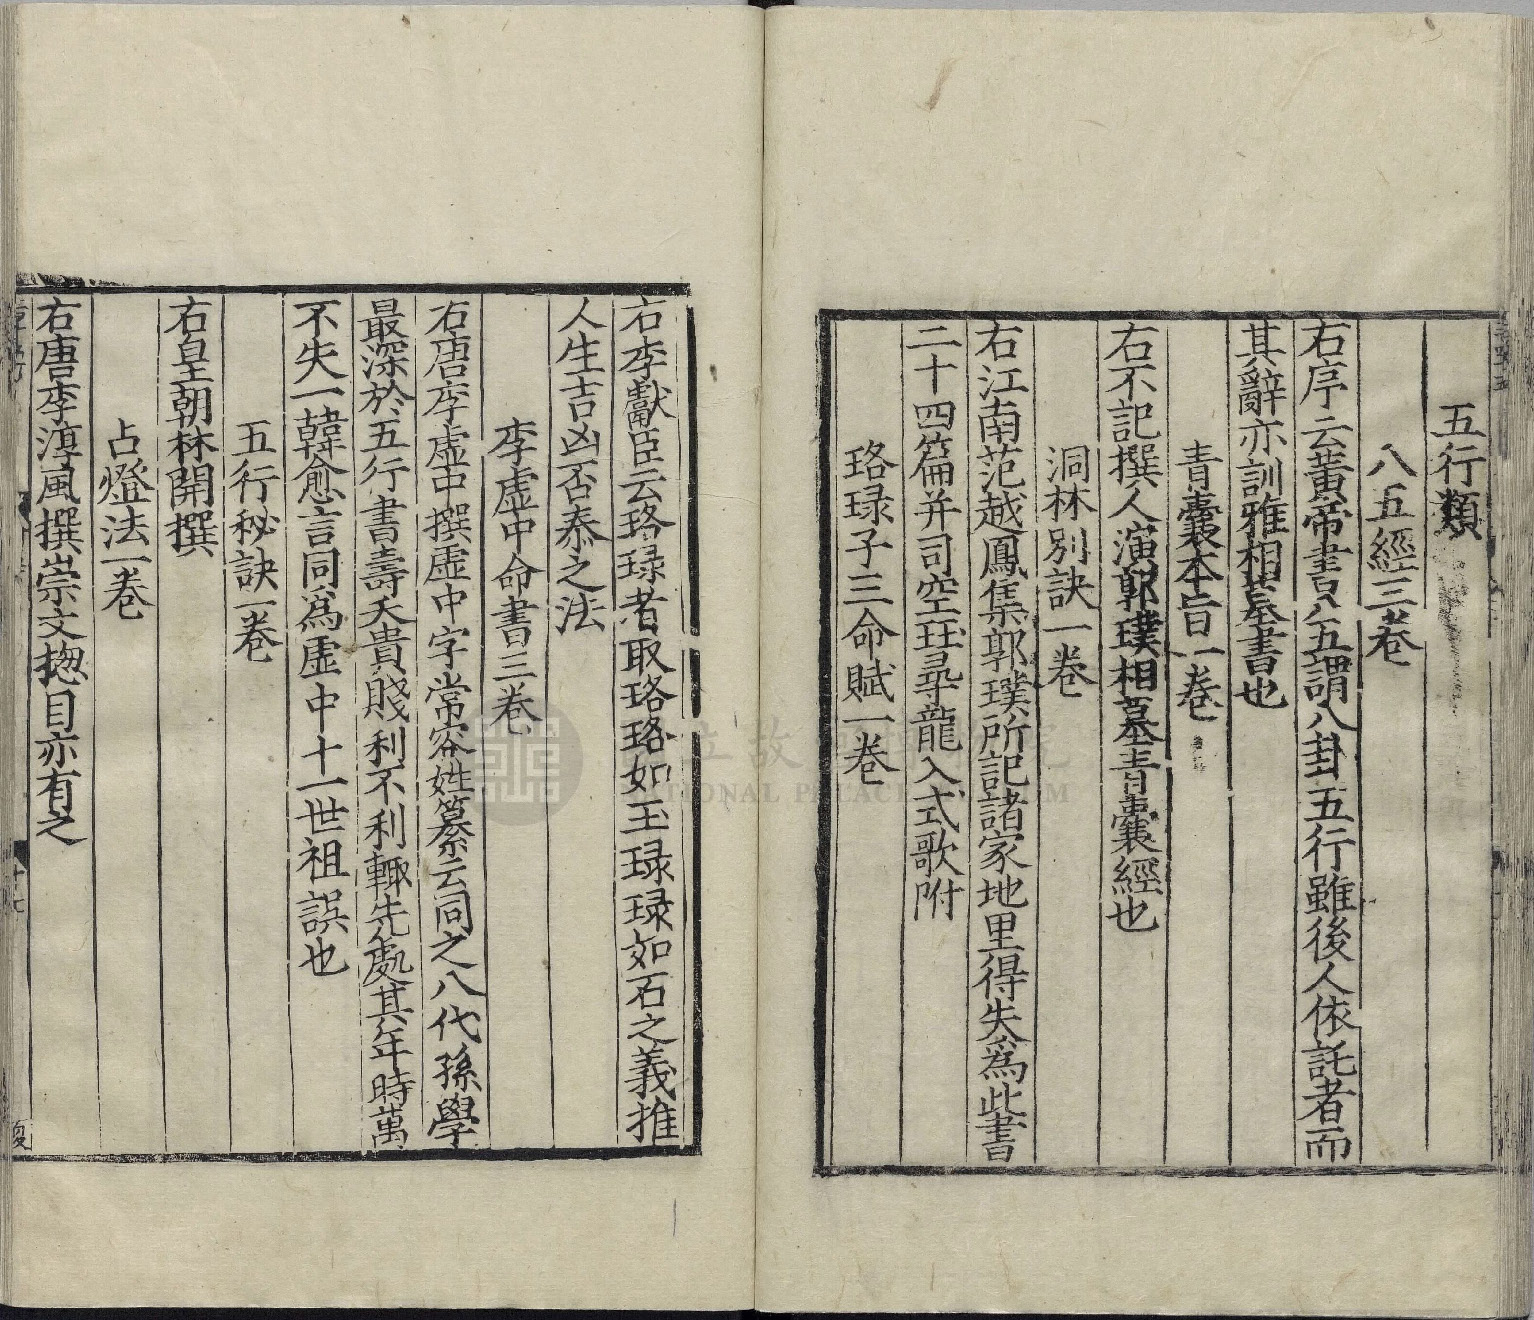 五行類
八五經三卷
右序云黃帝書八五謂八卦五行雖後人依託者而
其辭亦訓雅相墓書也
青囊本旨一卷
右不記撰人演郭璞相墓青囊經也
洞林別訣一卷
右江南范越鳳集郭璞所記諸家地里得失爲此書
二十四篇并司空珏尋龍入式歌附
珞琭子三命賦一卷
右李獻臣云珞琭者取珞珞如玉琭琭如石之義推
人生吉凶否泰之法
李虛中命書三卷
右唐李虛中撰虛中字常容姓纂云同之八代孫學
最深於五行書壽夭貴賤利不利輙先處其年時萬
不失一韓愈言同爲虛中十一世祖誤也
五行秘訣一卷
右皇朝林開撰
占燈法一卷
右唐李淳風撰崇文揔目亦有之
十七
國立故宮博物院
NATIONAL PALACE MUSEUM